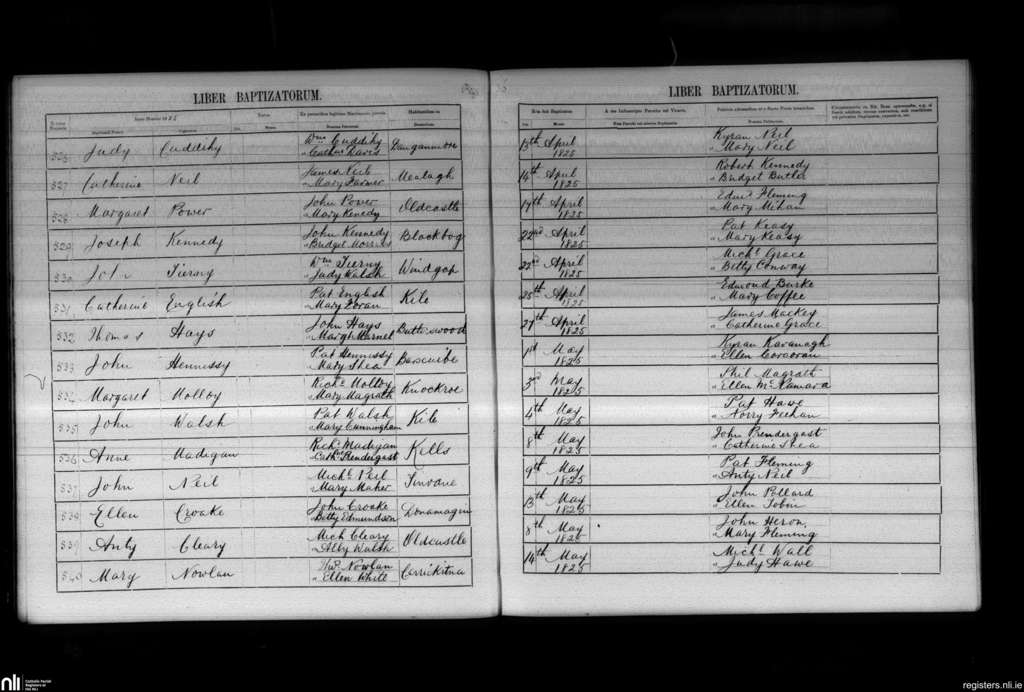 LIBER BAPTIZATORUM.
326 Judy Cuddihy Wm Cuddihy Dunganmore
" Cathne Davis
327 Catherine Neil James Neil Mealagh
" Mary Farmer
328 Margaret Power John Power Oldcastle
" Mary Kenedy
329 Joseph Kennedy John Kennedy Blackbog
" Bridget Morriss
330 John Tierny Wm Tierny Windgap
" Judy Walsh
331 Catherine English Pat English Kile
" Mary Foran
332 Thomas Hays John Hays Butlerswood
" Margt Murnel
333 John Hennessy Pat Hennessy
" Mary Shea
334 Margaret Molloy Richd Molloy Knockroe
" Mary Magrath
335 John Walsh Pat Walsh Kile
" Mary Cunningham
336 Anne Madigan Richd Madigan Kells
" Cathne Prendergast
337 John Neil Michl Neil Tinvane
" Mary Maher
338 Ellen Croake John Croake Donamagin
" Betty Edmundson
339 Anty Cleary Mich Cleary Oldcastle
" Alby Walsh
340 Mary Nowlan Thos Nowlan Carrickitna
" Ellen White
LIBER BAPTIZATORUM.
13th April Kyran Neil
1825 " Mary Neil
14th April Robert Kennedy
1825 " Bridget Butler
17th April Edmd Fleming
1825 " Mary Mihan
22nd April Pat Keasy
1825 " Mary Keasy
22nd April Michl Grace
1825 " Betty Conway
25th April Edmond Burke
1825 " Mary Coffee
27th April James Mackey
1825 " Catherine Grace
1st May Kyran Kavanagh
1825 " Ellen Corcoran
3rd May Phil Magrath
1825 " Ellen McNamara
4th May Pat Hawe
1825 " Norry Feehan
8th May John Prendergast
1825 " Catherine Shea
9th May Pat Fleming
1825 " Anty Neil
13th May John Pollard
1825 " Ellen Tobin
8th May John Heron
1825 " Mary Fleming
14th May Michl Wall
1825 " Judy Hawe
nli
Catholic Parish
Registers at
the NLI
registers.nli.ie